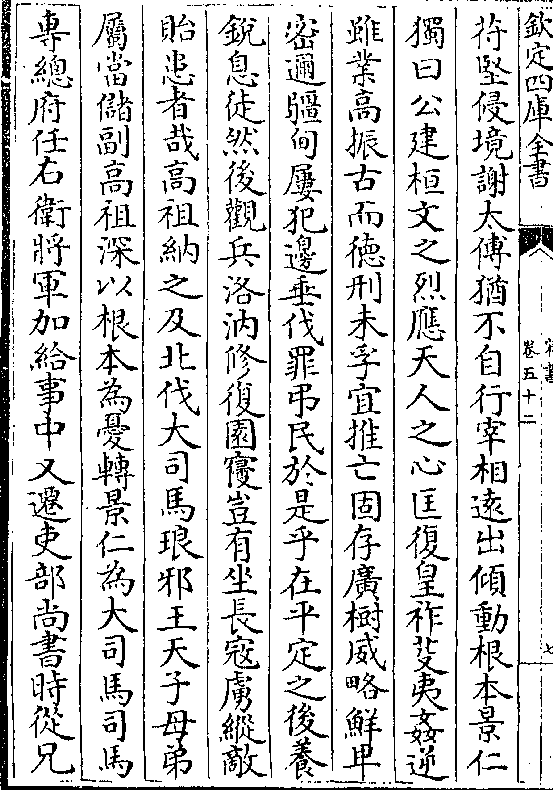 欽定四庫全書
宋書
卷五十二
七
苻堅侵境謝太傅猶不自行宰相遠出傾動根本景仁
獨曰公建桓文之烈應天人之心匡復皇祚芟夷姦逆
雖業高振古而德刑未孚宜推亡固存廣樹威略鮮卑
密邇疆甸屢犯邊垂伐罪弔民於是乎在平定之後養
銳息徒然後觀兵洛汭修復園寢豈有坐長寇虜縱敵
貽患者哉高祖納之及北伐大司馬琅邪王天子母弟
屬當儲副高祖深以根本為憂轉景仁為大司馬司馬
專總府任右衛將軍加給事中又遷吏部尚書時從兄